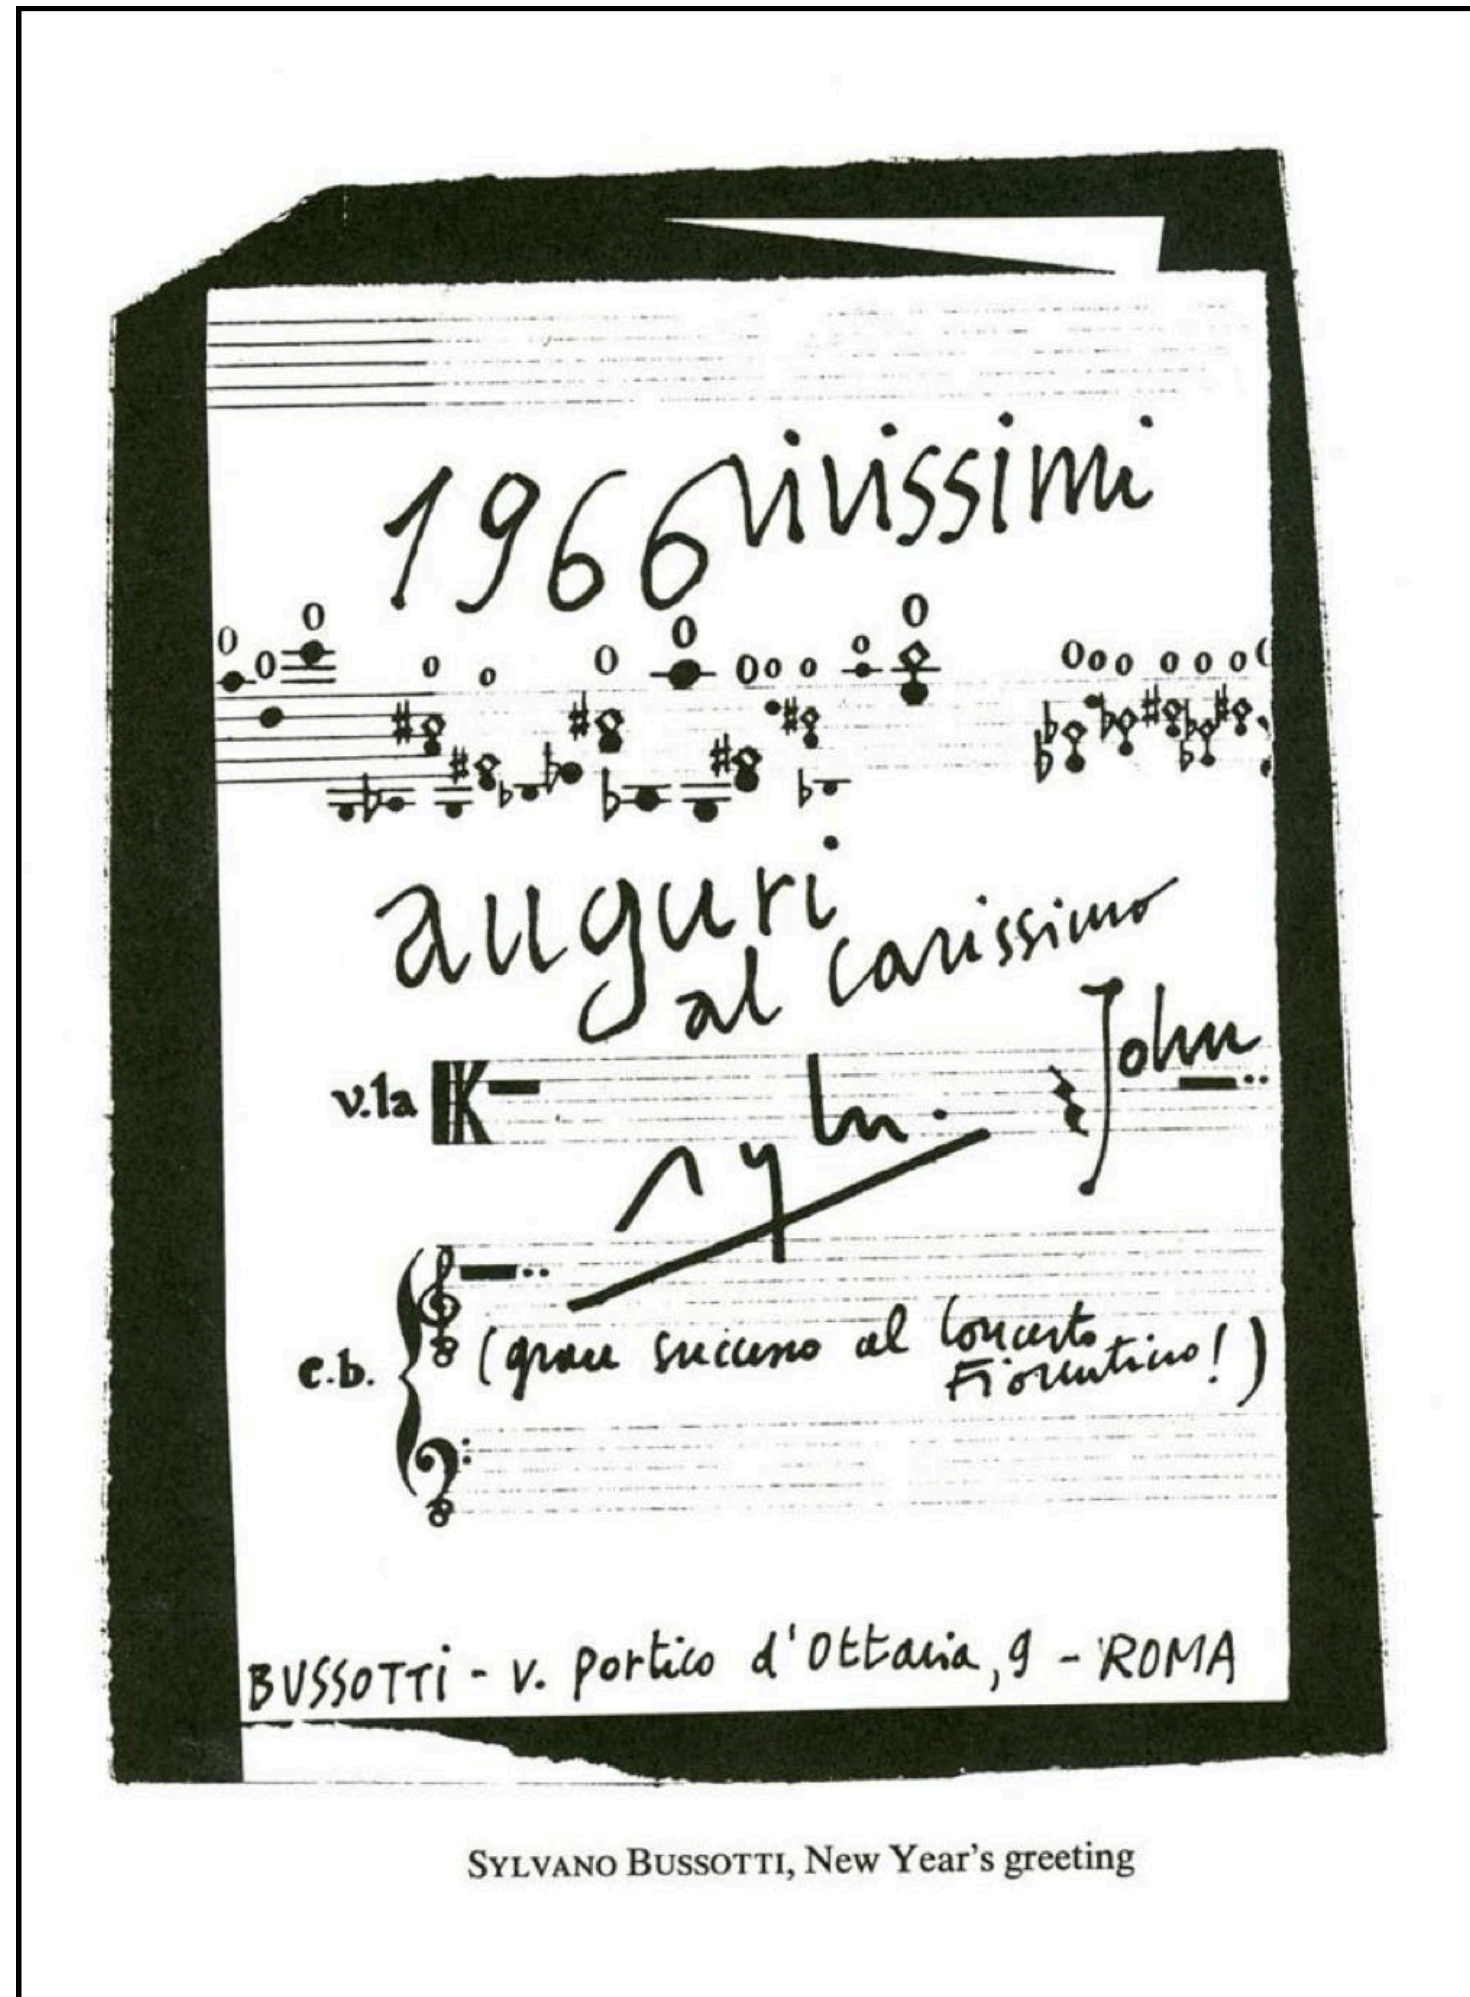 1966 vivissimi
auguri
al carissimo
John
v.la
Sylv.
c.b.
(grande successo al Concerto
Fiorentino!)
BUSSOTTI - v. Portico d'Ottavia, 9 - ROMA
SYLVANO BUSSOTTI, New Year's greeting